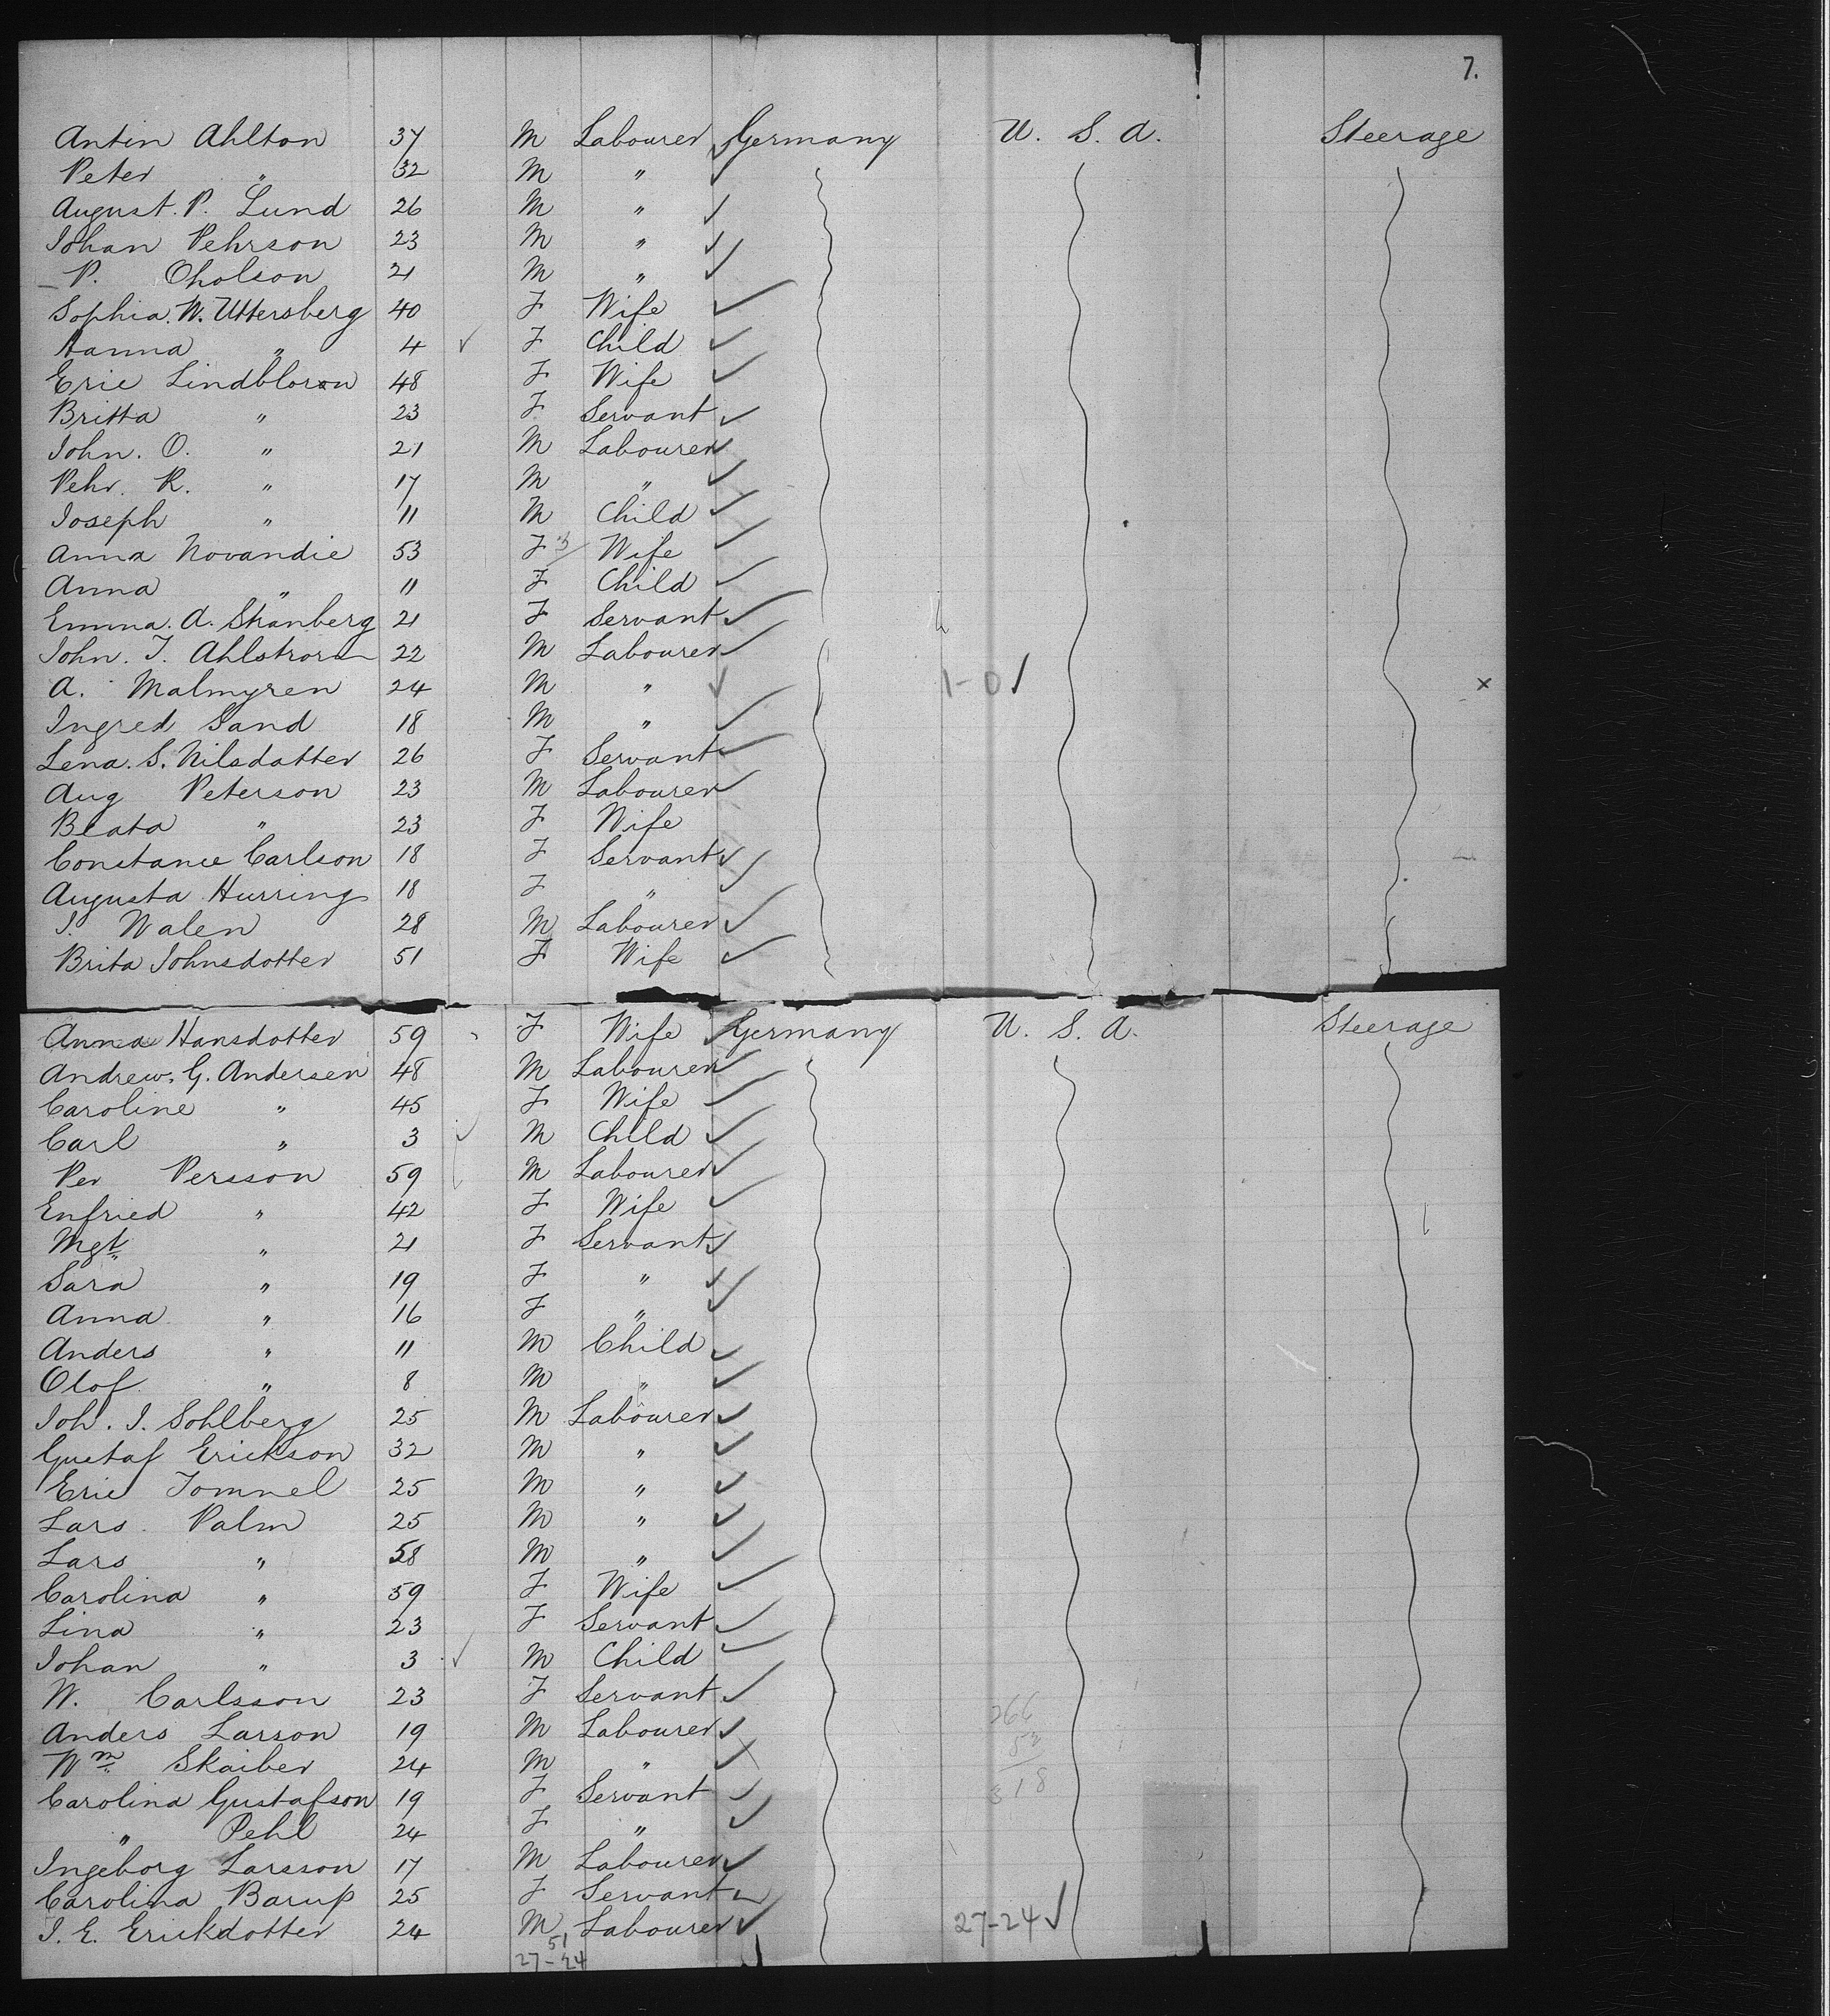 7.
Antin Ahlton 37 M Labourer Germany U. S. A. Steerage
Peter " 32 M "
August. P. Lund 26 M "
Johan Pehrson 23 M "
P. Oholson 21 M "
Sophia. W. Uttersberg 40 F Wife
Hanna " 4 F Child
Eric Lindblorom 48 F Wife
Britta " 23 F Servant
John. O. " 21 M Labourer
Pehr. R. " 17 M "
Joseph " 11 M Child
Anna Novandie 53 F Wife
Anna " 11 F Child
Emma. A. Stranberg 21 F Servant
John. J. Ahlstrom 22 M Labourer
A. Malmyren 24 M " 1-0
Ingred Sand 18 M "
Lena. S. Nilsdatter 26 F Servant
Aug Peterson 23 M Labourer
Beata " 23 F Wife
Constance Carlson 18 F Servant
Augusta Hurring 18 F "
J. Walen 28 M Labourer
Brita Johnsdotter 51 F Wife
Anna Hansdotter 59 F Wife Germany U. S. A. Steerage
Andrew. G. Andersen 48 M Labourer
Caroline " 45 F Wife
Carl " 3 M Child
Per Persson 59 M Labourer
Enfried " 42 F Wife
Mgt " 21 F Servant
Sara " 19 F "
Anna " 16 F "
Anders " 11 M Child
Olof " 8 M "
Joh. J. Sohlberg 25 M Labourer
Gustaf Erickson 32 M "
Eric Tommel 25 M "
Lars. Palm 25 M "
Lars " 58 M "
Carolina " 59 F Wife
Lina " 23 F Servant
Johan " 3 M Child
W. Carlsson 23 F Servant
Anders Larson 19 M Labourer 266
Wm Skaiber 24 M " 52
Carolina Gustafson 19 F Servant 318
" Pehl 24 F "
Ingeborg Larsson 17 M Labourer
Carolina Barup 25 F Servant
J. E. Erickdotter 24 M Labourer 27-24
51
27-24